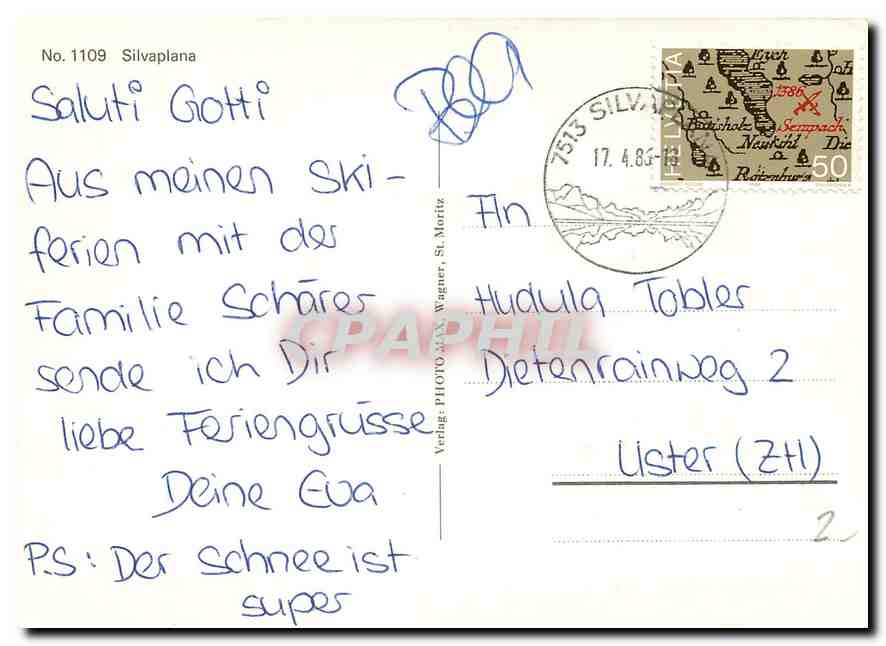 No. 1109 Silvaplana
Saluti Gotti
Aus meinen Ski-
ferien mit der
Familie Schärer
sende ich Dir
liebe Feriengrüsse
Deine Eva
P.S: Der Schnee ist
super
Verlag: PHOTO MAX, Wagner, St. Moritz
7513 SILVAPLANA
17. 4. 86-
HELVETIA
Eich
1386
Sempach
Buttisholz
Neukihl
Die
Rotenburg
50
An
Huldula Tobler
Dietenrainweg 2
Uster (ZH)
2
CPAPHIL